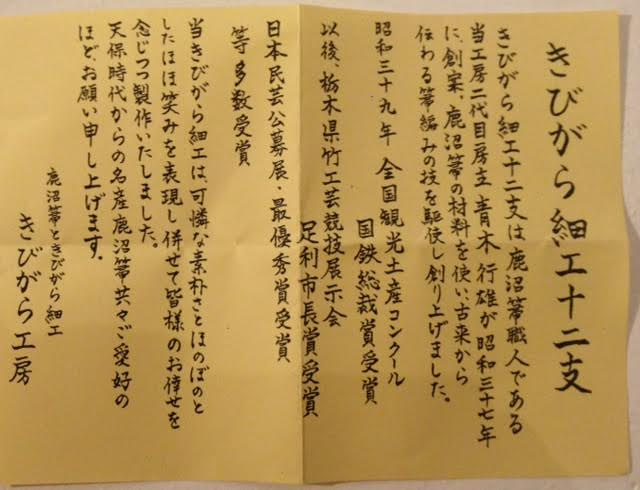 きびがら細工十二支
きびがら細工十二支は鹿沼箒職人である
当工房二代目房主青木行雄が昭和三十七年
に、創案、鹿沼箒の材料を使い、古来から
伝わる箒編みの技を駆使し創り上げました。
昭和三十九年 全国観光土産コンクール
国鉄総裁賞受賞
以後、栃木県竹工芸競技展示会
足利市長賞受賞
日本民芸公募展・最優秀賞受賞
等多数受賞
当きびがら細工は、可憐な素朴さとほのぼのと
したほほ笑みを表現し併せて皆様のお倖せを
念じつつ製作いたしました。
天保時代からの名産鹿沼箒共々ご愛好の
ほど、お願い申し上げます。
鹿沼箒ときびがら細工
きびがら工房